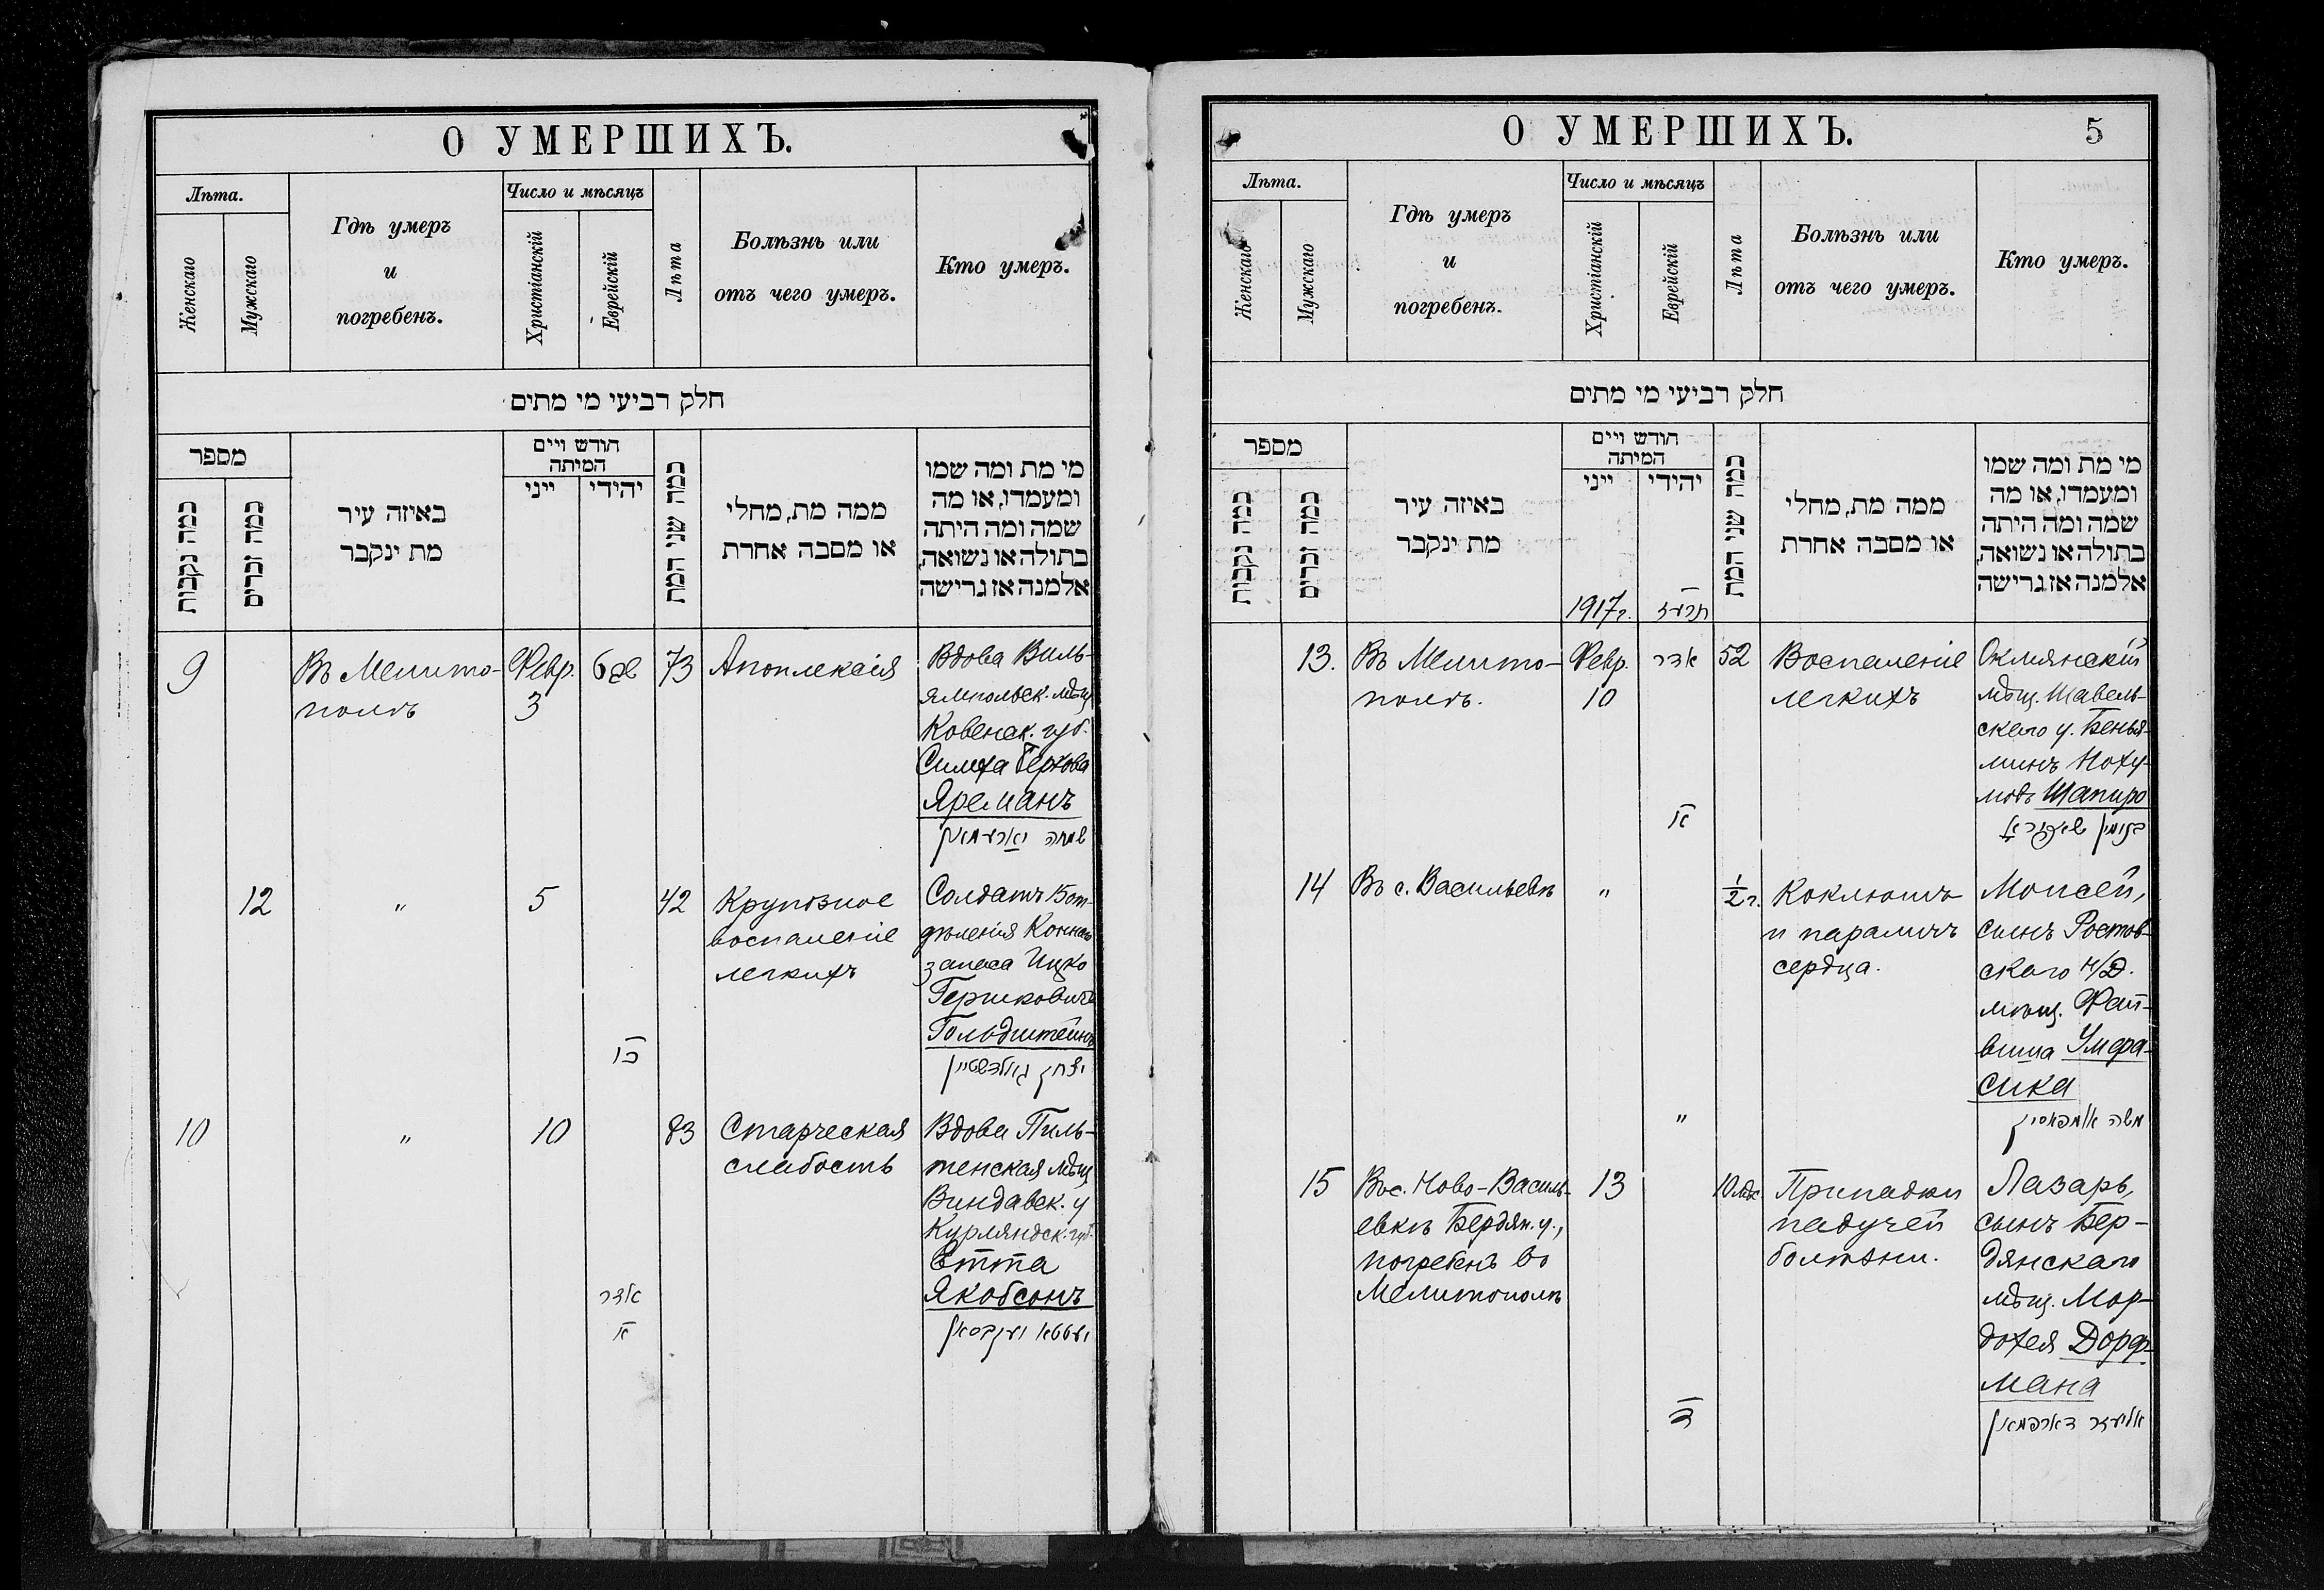 О УМЕРШИХЪ.
Лѣта.
Женскаго
Мужскаго
Гдѣ умеръ
и
погребенъ.
Число и мѣсяцъ
Христіанскій
Еврейскій
Лѣта
Болѣзнь или
отъ чего умеръ.
Кто умеръ.
חלק רביעי מי מתים
מספר
כמה נקבות
כמה זכרים
באיזה עיר
מת ינקבר
חודש ויים
המיתה
ייני
יהידי
כמה שני המת
ממה מת, מחלי
או מסבה אחרת
מי מת ומה שמו
ומעמדו, או מה
שמה ומה היתה
בתולה או נשואה,
אלמנה אז גרישה
9
Въ Мелито-
полѣ
Февр.
3
73
Апоплексія
Вдова Виль-
ямпольск. мѣщ
Ковенск. губ.
Симха Беркова
Яреманъ
שמחה יארעמאן
12
"
5
כו
42
Крупозное
воспаленіе
легкихъ
Солдатъ 15 от-
дѣленія Коннаго
запаса Ицко
Гершковичъ
Гольдштейнъ
יצחק גולדשטיין
10
"
10
אדר
א
83
Старческая
слабость
Вдова Пиль-
тенская мѣщ
Виндавск. у
Курляндск. губ.
Етта
Якобсонъ
יעטטא יעקבסאן
О УМЕРШИХЪ.
5
Лѣта.
Женскаго
Мужскаго
Гдѣ умеръ
и
погребенъ.
Число и мѣсяцъ
Христіанскій
Еврейскій
Лѣта
Болѣзнь или
отъ чего умеръ.
Кто умеръ.
חלק רביעי מי מתים
מספר
כמה נקבות
כמה זכרים
באיזה עיר
מת ינקבר
חודש ויים
המיתה
ייני
יהידי
1917г.
תרעז
כמה שני המת
ממה מת, מחלי
או מסבה אחרת
מי מת ומה שמו
ומעמדו, או מה
שמה ומה היתה
בתולה או נשואה,
אלמנה אז גרישה
13.
Въ Мелито-
полѣ.
Февр.
10
אדר
א
52
Воспаленіе
легкихъ
Окмянскій
мѣщ. Шавель-
скаго у. Бенья-
минъ Ноху-
мовъ Шапиро
בנימין שאפירא
14
Въ с. Васильевкѣ
"
"
½ г.
Коклюшъ
и параличъ
сердца.
Моисей,
сынъ Ростов-
скаго н/Д.
мѣщ. Фай-
виша Умфа-
сика
משה אומפאסיק
15
Въ с. Ново-Василь-
евкѣ Бердян. у.,
погребенъ въ
Мелитополѣ
13
ד
10 мѣс
Припадки
падучей
болѣзни.
Лазарь,
сынъ Бер-
дянскаго
мѣщ. Мор-
дохея Дорф-
мана
אליעזר דארפמאן